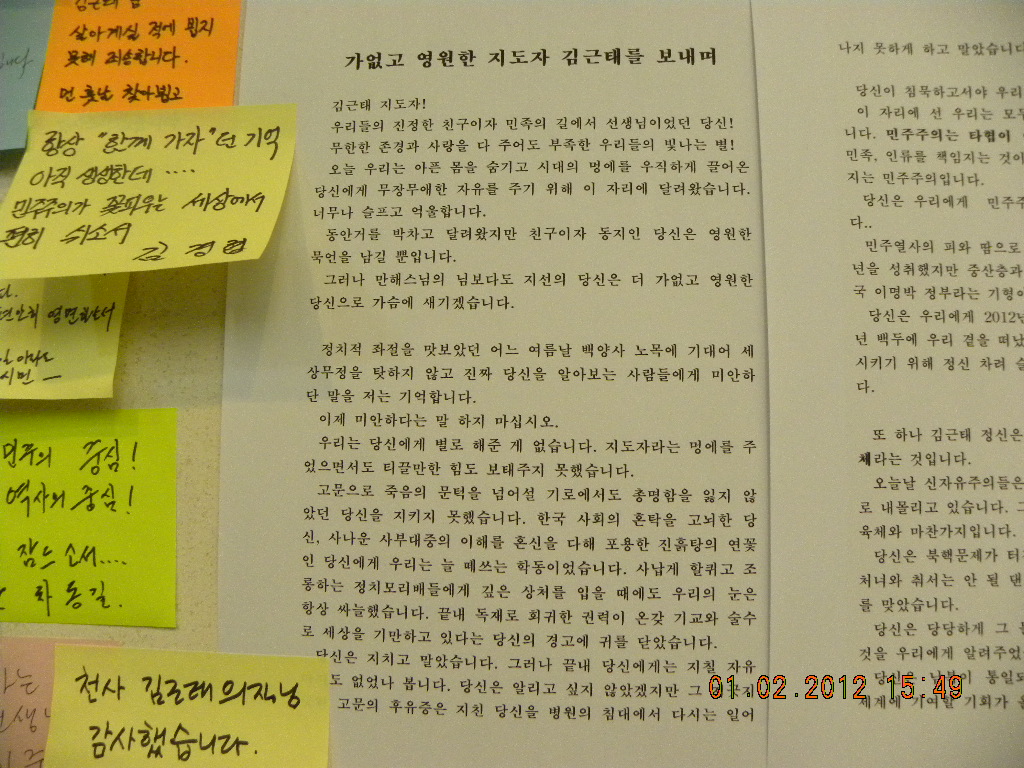 살아계실 적에 뵙지
못해 죄송합니다.
먼 훗날 찾아뵙고
항상 "함께 가자"던 기억
아직 생생한데 ....
민주주의가 꽃피우는 세상에서
편히 쉬소서
중심!
역사의 중심!
잠드소서....
천사 김근태 의장님
감사했습니다.
가없고 영원한 지도자 김근태를 보내며
김근태 지도자!
우리들의 진정한 친구이자 민족의 길에서 선생님이었던 당신!
무한한 존경과 사랑을 다 주어도 부족한 우리들의 빛나는 별!
오늘 우리는 아픈 몸을 숨기고 시대의 멍에를 우직하게 끌어온
당신에게 무장무애한 자유를 주기 위해 이 자리에 달려왔습니다.
너무나 슬프고 억울합니다.
동안거를 박차고 달려왔지만 친구이자 동지인 당신은 영원한
묵언을 남길 뿐입니다.
그러나 만해스님의 님보다도 지선의 당신은 더 가없고 영원한
당신으로 가슴에 새기겠습니다.
정치적 좌절을 맛보았던 어느 여름날 백양사 노목에 기대어 세
상무정을 탓하지 않고 진짜 당신을 알아보는 사람들에게 미안하
단 말을 저는 기억합니다.
이제 미안하다는 말 하지 마십시오.
우리는 당신에게 별로 해준 게 없습니다. 지도자라는 멍에를 주
었으면서도 티끌만한 힘도 보태주지 못했습니다.
고문으로 죽음의 문턱을 넘어설 기로에서도 총명함을 잃지 않
았던 당신을 지키지 못했습니다. 한국 사회의 혼탁을 고뇌한 당
신, 사나운 사부대중의 이해를 혼신을 다해 포용한 진흙탕의 연꽃
인 당신에게 우리는 늘 떼쓰는 학동이었습니다. 사납게 할퀴고 조
롱하는 정치모리배들에게 깊은 상처를 입을 때에도 우리의 눈은
항상 싸늘했습니다. 끝내 독재로 회귀한 권력이 온갖 기교와 술수
로 세상을 기만하고 있다는 당신의 경고에 귀를 닫았습니다.
당신은 지치고 말았습니다. 그러나 끝내 당신에게는 지칠 자유
도 없었나 봅니다. 당신은 알리고 싶지 않았겠지만 그
고문의 후유증은 지친 당신을 병원의 침대에서 다시는 일어
나지 못하게 하고 말았습니다
당신이 침묵하고서야 우리
이 자리에 선 우리는 모두
니다. 민주주의는 타협이
민족, 인류를 책임지는 것이
지는 민주주의입니다.
당신은 우리에게 민주주
다..
민주열사의 피와 땀으로
년을 성취했지만 중산층과
국 이명박 정부라는 기형
당신은 우리에게 2012년
년 백두에 우리 곁을 떠났
시키기 위해 정신 차려
다.
또 하나 김근태 정신은
체라는 것입니다.
오늘날 신자유주의들은
로 내몰리고 있습니다.
육체와 마찬가지입니다.
당신은 북핵문제가 터
처녀와 춰서는 안 될 댄
를 맞았습니다.
당신은 당당하게 그
것을 우리에게 알려주었
통일되
세계에 기여할 기회가
01.02.2012 15:49